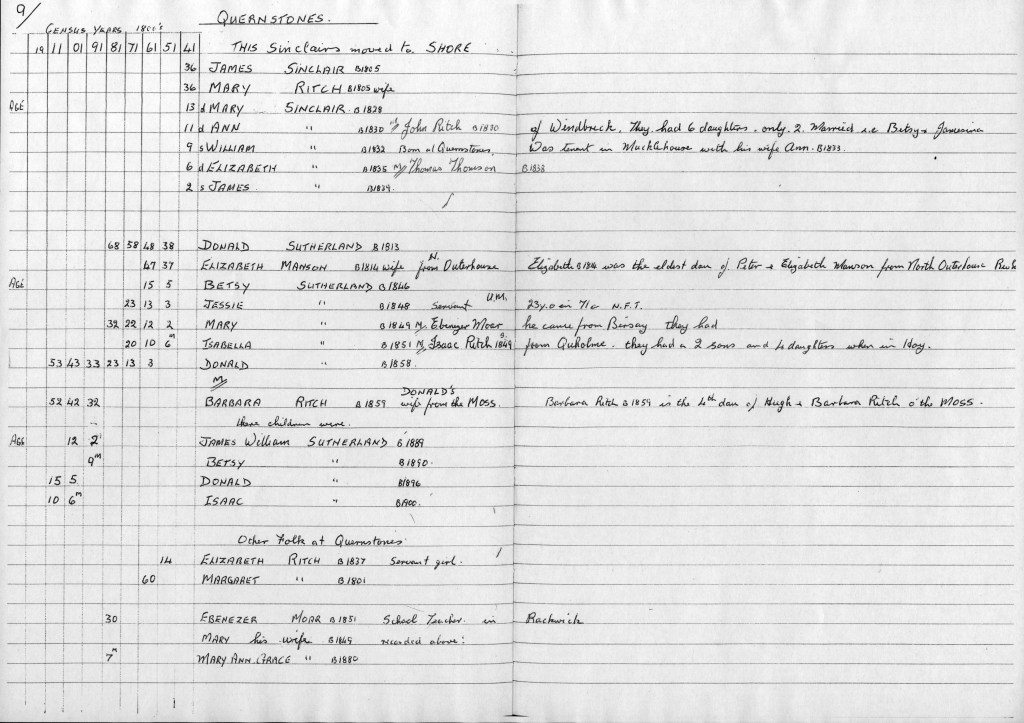 9/ QUERNSTONES.
CENSUS YEARS 1800's
19 11 01 91 81 71 61 51 41 THIS Sinclairs moved to SHORE
36 JAMES SINCLAIR B1805
36 MARY RITCH B1805 wife
AGE 13 d MARY SINCLAIR B1828
11 d ANN " B1830 M John Ritch B1830 of Windbreck. They had 6 daughters, only 2 Married i.e Betsy & Jamesina
9 s WILLIAM " B1832 Born at Quernstones, Was tenant in Mucklehouse with his wife Ann. B1833.
6 d ELIZABETH " B1835 M Thomas Thomson B1833
2 s JAMES. " B1839.
68 58 48 38 DONALD SUTHERLAND B1813
47 37 ELIZABETH MANSON B1814 wife from N. Outerhouse Elizabeth B1814 was the eldest dau of Peter & Elizabeth Manson from North Outerhouse Rack
AGE 15 5 BETSY SUTHERLAND B1846
23 13 3 JESSIE " B1848 Servant U.M. 23y.o in 71c N.F.T.
32 22 12 2 MARY " B1849 M Ebenezer Moar he came from Birsay they had
20 10 6m ISABELLA " B1851 M Isaac Ritch 1849 from Quholme. they had a 2 sons and 4 daughters when in Hoy.
53 43 33 23 13 3 DONALD " B1858.
M
52 42 32 BARBARA RITCH B1859 DONALD'S wife from the MOSS. Barbara Ritch B1859 is the 4th dau of Hugh & Barbara Ritch o' the MOSS.
there children were.
AGE 12 2 JAMES William SUTHERLAND B1889
9m BETSY " B1890.
15 5 DONALD " B1896
10 6m ISAAC " B1900.
Other Folk at Quernstones
14 ELIZABETH RITCH B1837 Servant girl.
60 MARGARET " B1801
30 EBENEZER MOAR B1851 School Teacher in Rackwick
MARY his wife B1849 recorded above:
7m MARY ANN. GRACE " B1880